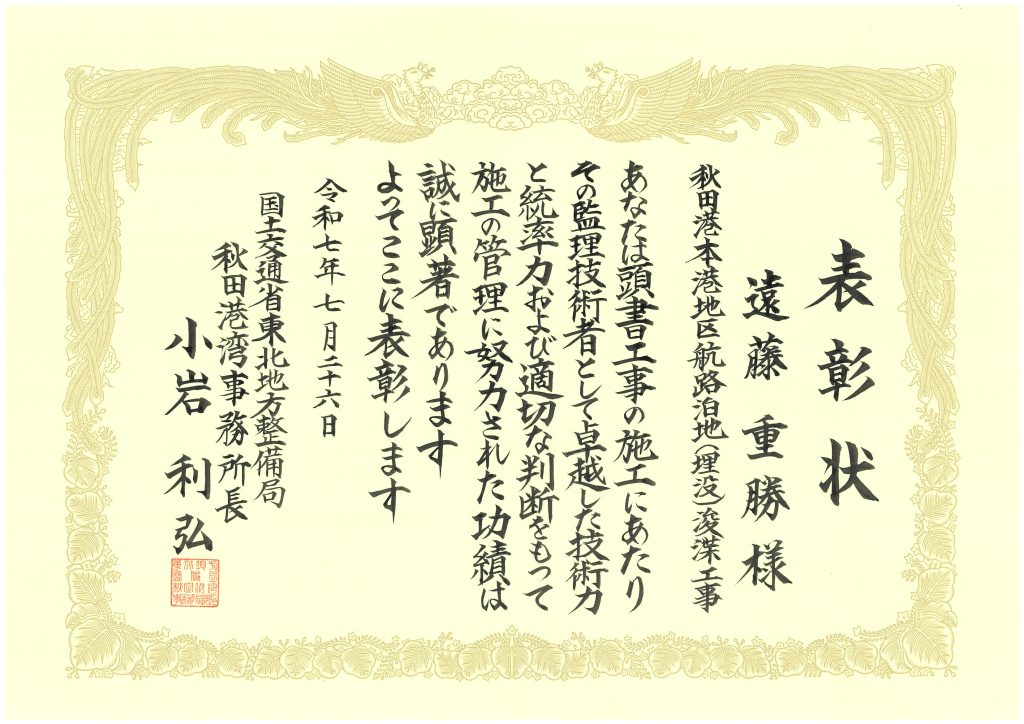 表彰状
遠藤重勝様
秋田港本港地区航路泊地(埋没)浚渫工事
あなたは頭書工事の施工にあたり
その監理技術者として卓越した技術力
と統率力および適切な判断をもって
施工の管理に努力された功績は
誠に顕著であります
よってここに表彰します
令和七年七月二十六日
国土交通省東北地方整備局
秋田港湾事務所長
小岩利弘